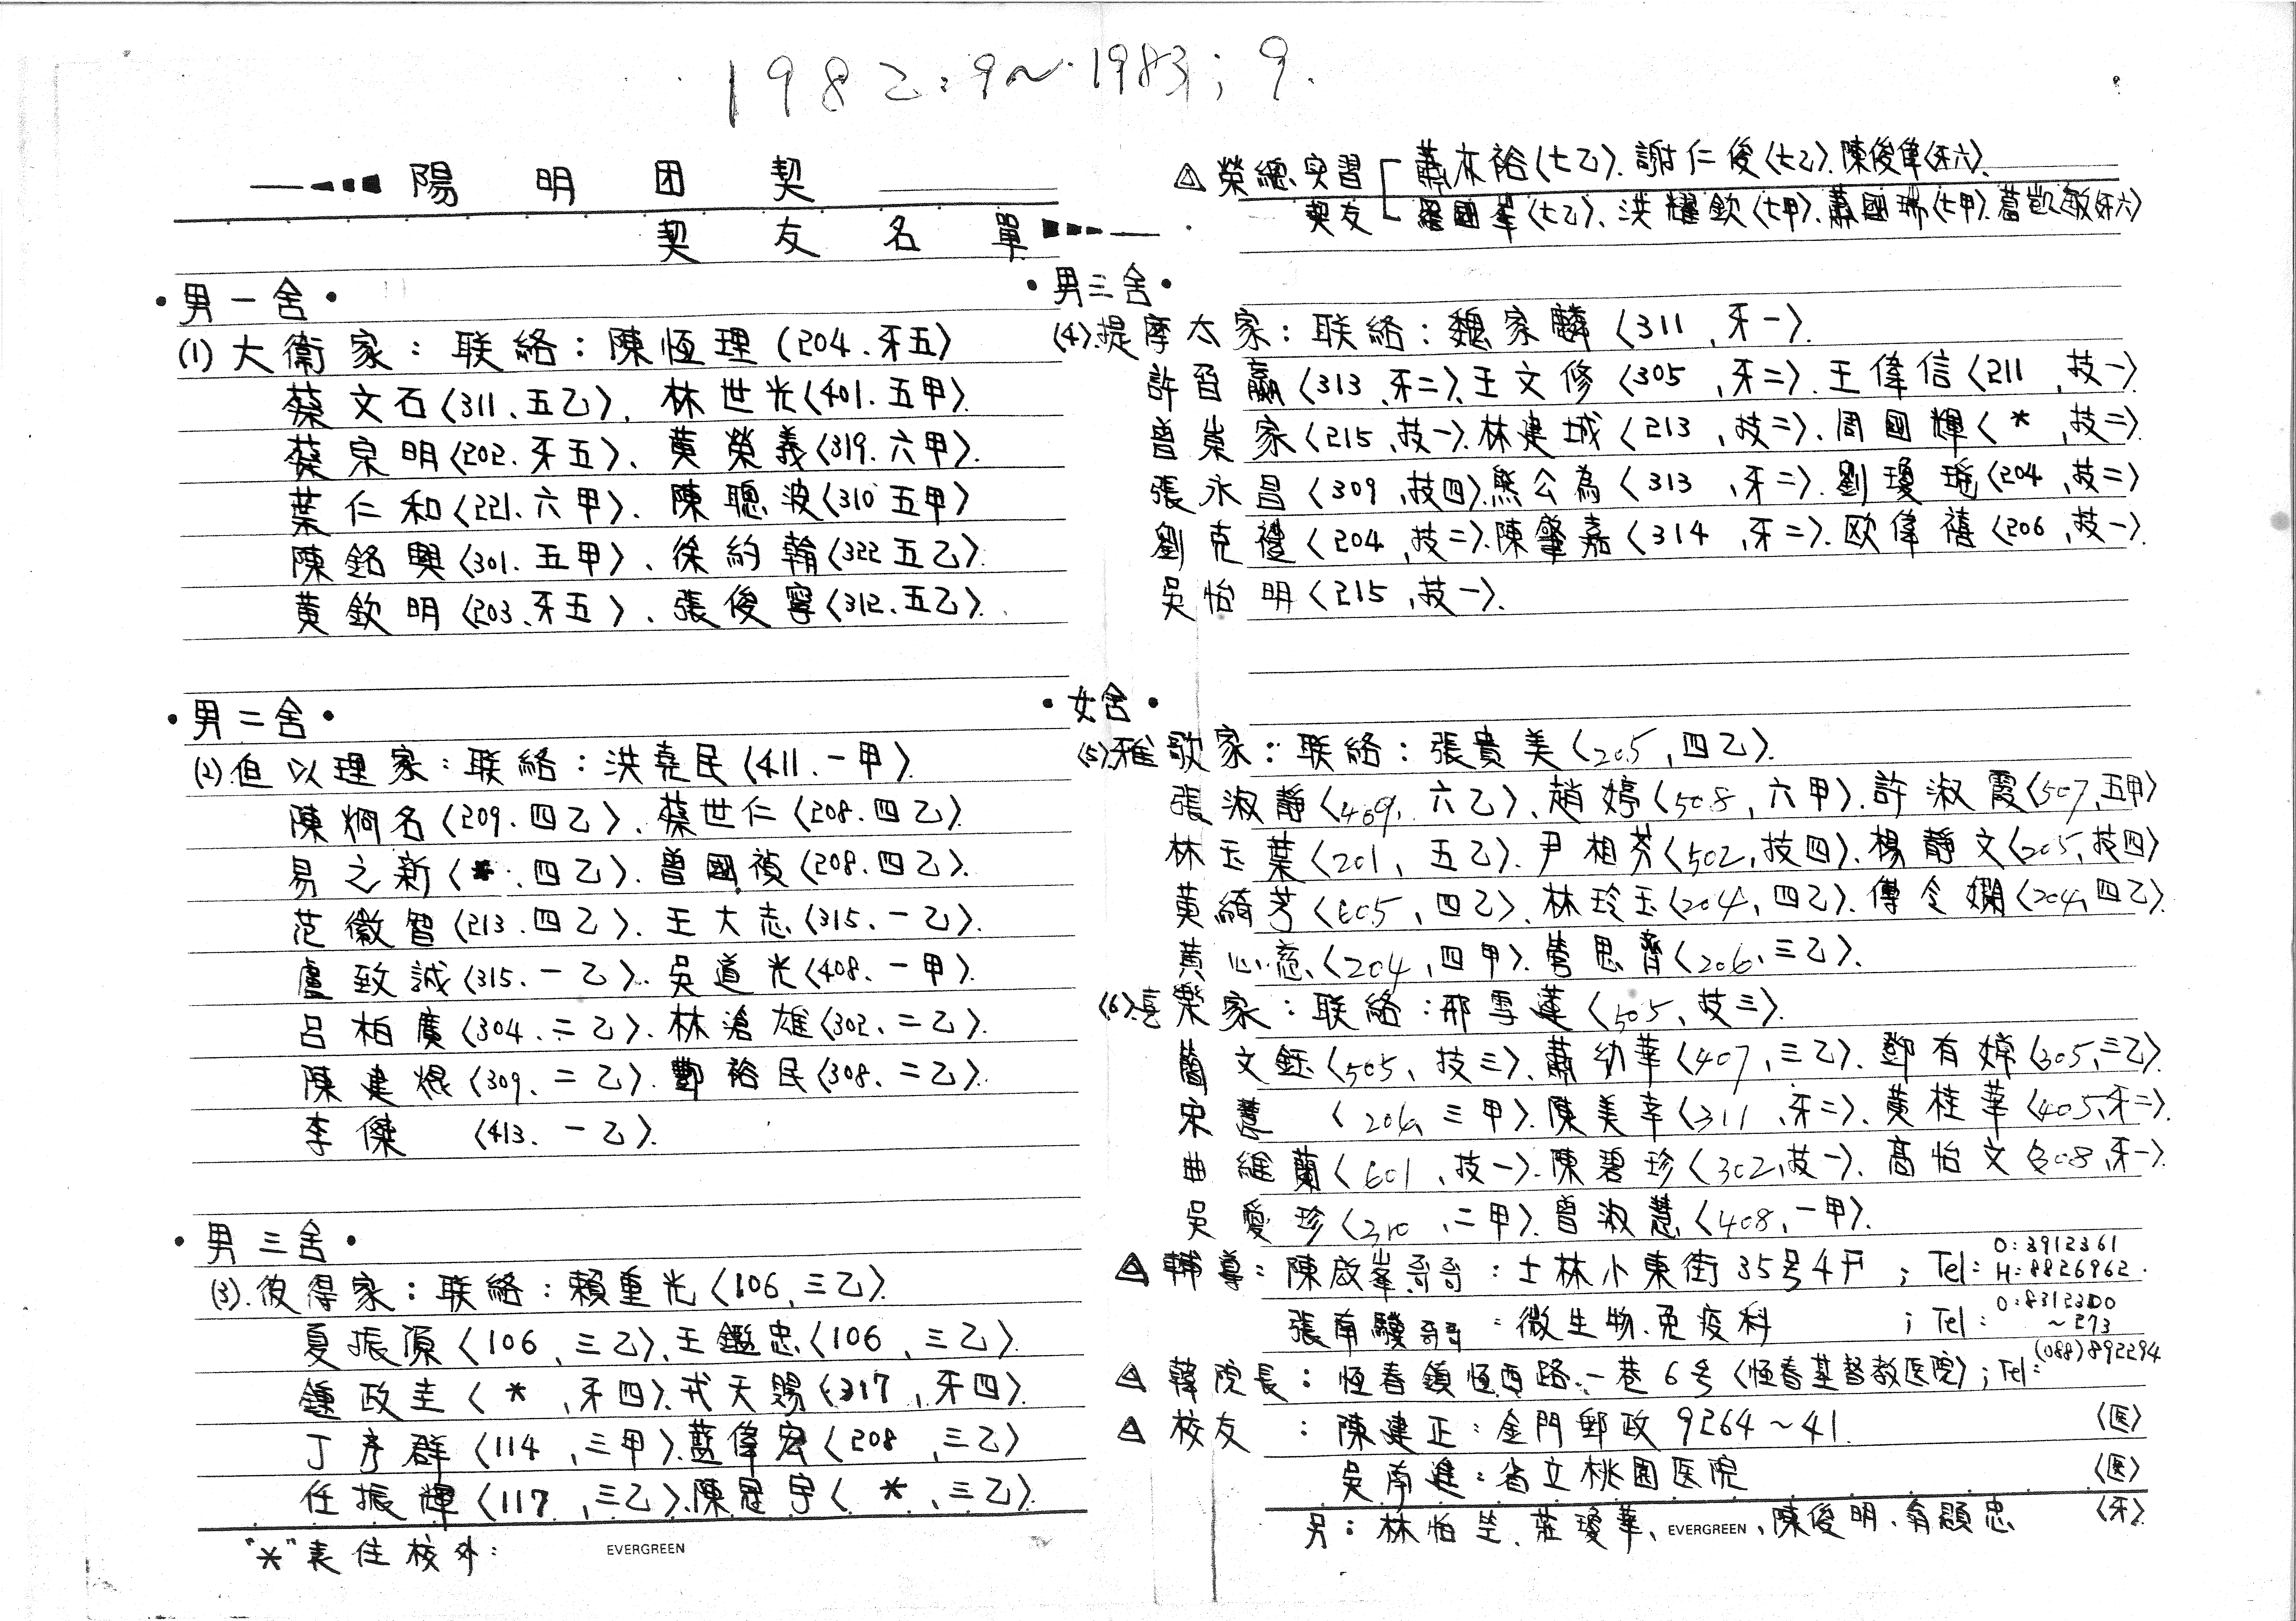 1982:9~1983;9.
陽明团契
契友名單
•男一舍•
(1)大衛家：联絡：陳恆理(204.牙五)
蔡文石〈311、五乙〉、林世光〈401.五甲〉.
蔡泉明〈202.牙五〉、黃榮義〈319.六甲〉.
葉仁和〈221.六甲〉、陳聰波〈310 五甲〉
陳銘興〈301.五甲〉、徐約翰〈322 五乙〉.
黃欽明〈203.牙五〉、張俊寧〈312.五乙〉.
•男二舍•
(2)但以理家：联絡：洪堯民〈411.一甲〉.
陳炯名〈209.四乙〉、蔡世仁〈208.四乙〉.
易之新〈*.四乙〉、曾國禎〈208.四乙〉.
范徽智〈213.四乙〉、王大志〈315.一乙〉.
盧致誠〈315.一乙〉、吳道光〈408.一甲〉.
呂柏廣〈304.二乙〉、林滄雄〈302.二乙〉.
陳建焜〈309、二乙〉、鄷裕民〈308、二乙〉.
李傑〈413.一乙〉.
•男三舍•
(3).彼得家：联絡：賴重光〈106,三乙〉.
夏振原〈106,三乙〉、王鑑忠〈106,三乙〉.
鍾政圭〈*,牙四〉、戎天賜〈317,牙四〉.
丁彥群〈114,三甲〉、藍偉宏〈208,三乙〉
任振輝〈117,三乙〉、陳冠宇〈*,三乙〉.
"*"表住校外：
EVERGREEN
△榮總实習 蕭本裕〈七乙〉、謝仁俊〈七乙〉、陳俊偉〈牙六〉.
契友 羅國峯〈七乙〉、洪耀欽〈七甲〉、蕭國瑞〈七甲〉、葛凱敏〈牙六〉
•男三舍•
(4).提摩太家：联絡：魏家麟〈311,牙一〉.
許晉贏〈313,牙二〉、王文修〈305,牙二〉、王偉信〈211,技一〉
曾崇家〈215,技一〉、林建城〈213,技二〉、周國輝〈*,技二〉.
張永昌〈309,技四〉、熊公為〈313,牙二〉、劉瓊琁〈204,技二〉
劉克禮〈204,技二〉、陳肇嘉〈314,牙二〉、欧偉禧〈206,技一〉.
吳怡明〈215,技一〉.
•女舍•
(5).雅歌家：联絡：張貴美〈205,四乙〉.
張淑靜〈409,六乙〉、趙婷〈508,六甲〉、許淑霞〈507,五甲〉
林玉葉〈201,五乙〉、尹相芬〈502,技四〉、楊靜文〈205,技四〉
黃綺芳〈605,四乙〉、林玲玉〈204,四乙〉、傅令嫻〈204,四乙〉.
黃心意〈204,四甲〉、管思齊〈206,三乙〉.
(6).喜樂家：联絡：邢雪蓮〈505,技三〉.
簡文鈺〈505,技三〉、蕭幼華〈407,三乙〉、鄧有嫦〈305,三乙〉.
宋慧〈204,三甲〉、陳美幸〈311,牙二〉、黃桂華〈405,牙二〉.
曲維蘭〈601,技一〉、陳碧珍〈302,技一〉、高怡文〈308,牙一〉.
吳愛珍〈310,二甲〉、曾淑慧〈408,一甲〉.
△輔導：陳啟峯哥哥：士林小東街35号4F；Tel: O:3912361 H:8826962.
張南驥哥哥：微生物.免疫科；Tel: O:8312300 ~273
△韓院長：恆春鎮恆西路一巷6号〈恆春基督教医院〉；Tel: (088)892294
△校友：陳建正：金門郵政9264~41.〈医〉
吳南進：省立桃園医院〈医〉
另：林怡苙、莊瓊華、EVERGREEN、陳俊明、翁顯忠〈牙〉